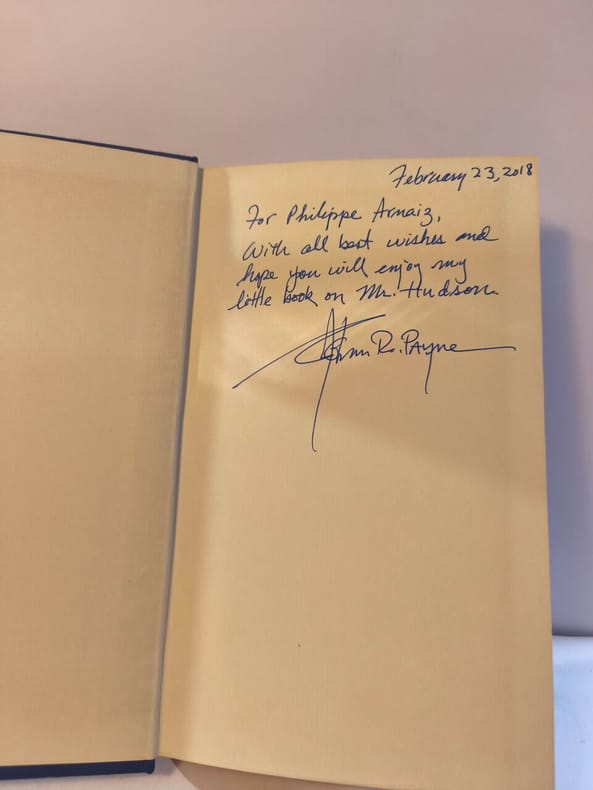 February 23, 2018
For Philippe Arnaiz,
With all best wishes and
hope you will enjoy my
little book on Mr. Hudson.
John R. Payne